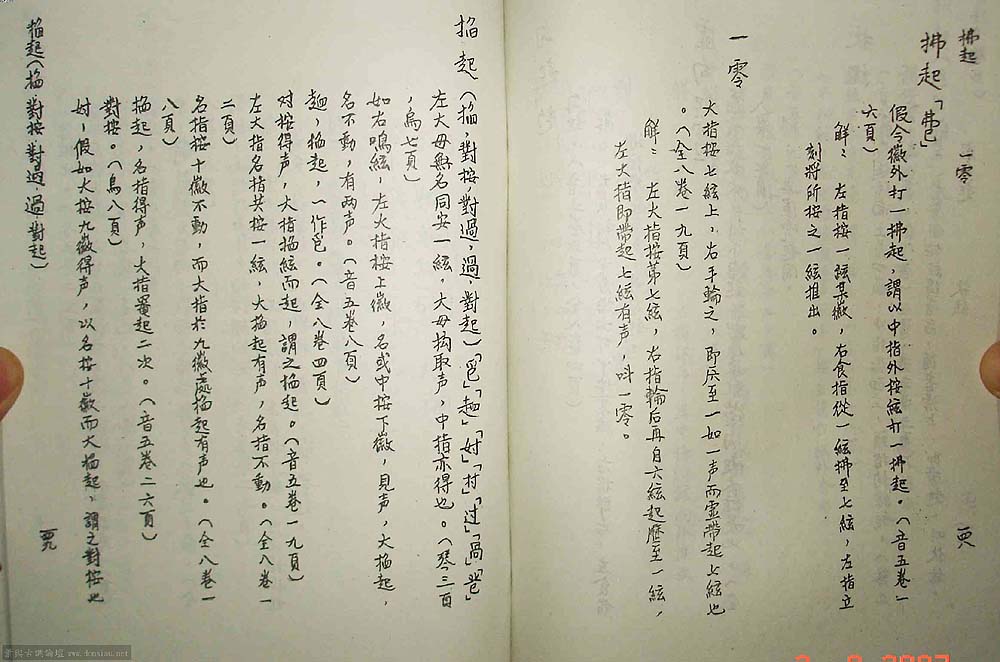 拂起 一零
拂起「弗巳」
假令徽外打一拂起，謂以中指外按絃打一拂起。（音五卷一
六頁）
解： 左指按一絃某徽，右食指從一絃拂至七絃，左指立
刻將所按之一絃推出。
一零
大指按七絃上，右手輪之，即歷至一如一声而虛帶起七絃也
。（仝八卷一九頁）
解： 左大指按第七絃，右指輪后再自六絃起歷至一絃，
左大指即帶起七絃有声，叫一零。
四八
掐起（掐，對按，對過，過，對起）
左大毋無名同安一絃，大毋掏取声，中指亦得也。（琴三百
，烏七頁）
如右鳴絃，左大指按上徽，名或中按下徽，見声，大掐起，
名不動，有两声。（音五卷八頁）
掐起，一作。（仝八卷四頁）
对按得声，大指掐絃而起，謂之掐起。（音五卷一九頁）
左大指名指共按一絃，大掐起有声，名指不動。（仝八卷一
二頁）
名指按十徽不動，而大指於九徽處掐起有声也。（仝八卷一
八頁）
掐起，名指得声，大指罨起二次。（音五卷二六頁）
對按。（烏八頁）
对，假如大按九徽得声，以名按十徽而大掐起，謂之對按也
掐起（掐 對按 對過，過 對起）
四九
景阳古琴論壇